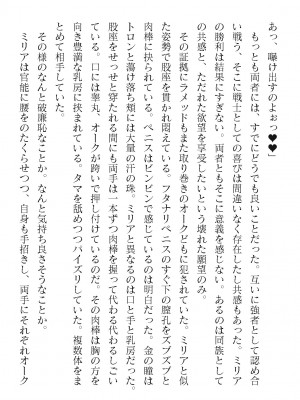 あっ、曝け出すのよぉっ♥♥」
　もっとも両者には、すでにどうでも良いことだった。互いに強者として認め合
い戦う、そこに戦士としての喜びは間違いなく存在したし共感もあった。ミリア
の勝利は結果にすぎない。両者ともそこに意義を感じない。あるのは同族として
の共感と、ただれた欲望を享受したいという壊れた願望のみ。
　その証拠にラメットもまた取り巻きのオークどもに犯されていた。ミリアと似
た姿勢で股座を貫かれ悶えている。フタナリペニスのすぐ下の膣孔をズブズブと
肉棒に突き上げられ、ペニスはビンビンで感じているのは明白だった。金の瞳は
トロンと蕩け落ち頬には大量の汗の珠。ミリアと異なるのは口と手と乳房だった。
股座をせっせと穿たれる間にも両手は一本ずつ肉棒を握って代わる代わるしごい
ている。口には睾丸、オークが跨いで押し付けているのだ。その肉棒は胸の方を
向き豊満な乳房に挟まれている。タマを舐めつつパイズリしていた。複数体をま
とめて相手していた。
　その様のなんと破廉恥なことか。なんと気持ち良さそうなことか。
　ミリアは官能に腰をのたくらせつつ、自身も手招きし、両手にそれぞれオーク